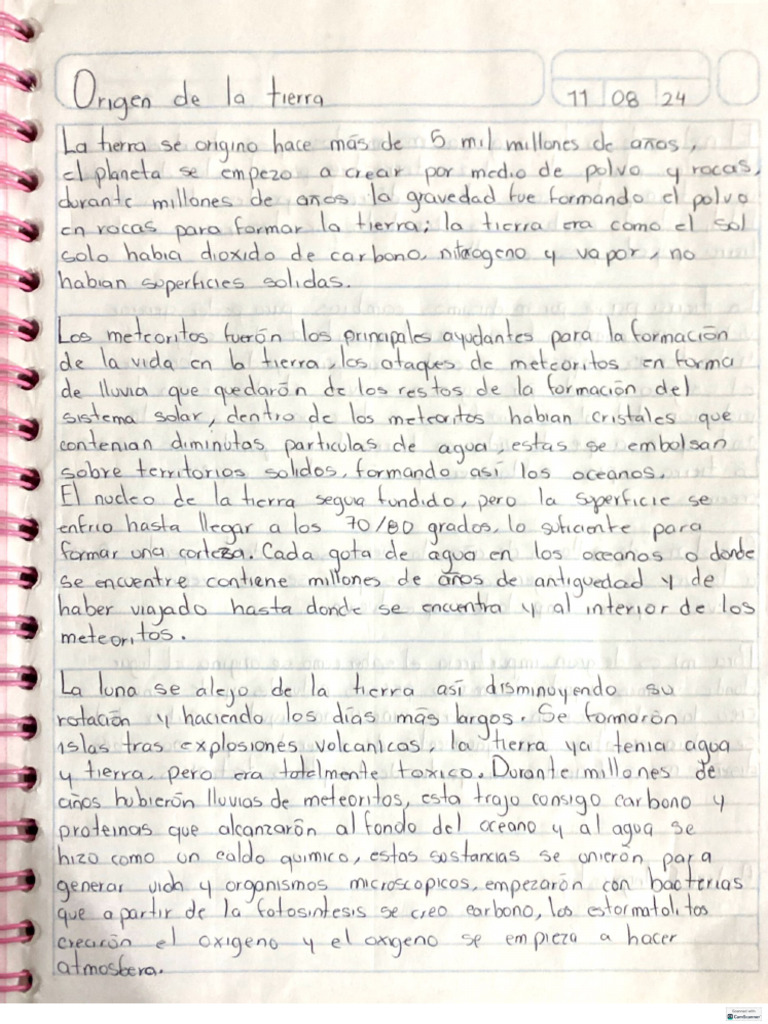 Origen de la tierra
11 08 24
La tierra se origino hace más de 5 mil millones de años,
el planeta se empezo a crear por medio de polvo y rocas,
durante millones de años la gravedad fue formando el polvo
en rocas para formar la tierra; la tierra era como el sol
solo habia dioxido de carbono, nitrogeno y vapor, no
habian superficies solidas.
Los meteoritos fuerón los principales ayudantes para la formación
de la vida en la tierra, los ataques de meteoritos en forma
de lluvia que quedarón de los restos de la formación del
sistema solar, dentro de los meteoritos habian cristales que
contenian diminutas particulas de agua, estas se embolsan
sobre territorios solidos, formando así los oceanos.
El nucleo de la tierra seguia fundido, pero la superficie se
enfrio hasta llegar a los 70/80 grados, lo suficiente para
formar una corteza. Cada gota de agua en los oceanos o donde
se encuentre contiene millones de años de antiguedad y de
haber viajado hasta donde se encuentra y al interior de los
meteoritos.
La luna se alejo de la tierra así disminuyendo su
rotación y haciendo los días más largos. Se formarón
islas tras explosiones volcanicas, la tierra ya tenia agua
y tierra, pero era totalmente toxico. Durante millones de
años hubierón lluvias de meteoritos, esta trajo consigo carbono y
proteinas que alcanzarón al fondo del oceano y al agua se
hizo como un caldo quimico, estas sustancias se unierón para
generar vida y organismos microscopicos, empezarón con bacterias
que a partir de la fotosintesis se creo carbono, los estormatolitos
crearón el oxigeno y el oxgeno se empieza a hacer
atmosfera.
Scanned with
CamScanner